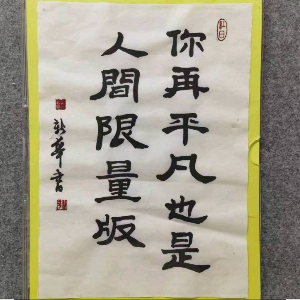 你再平凡也是
人間限量版
新華書